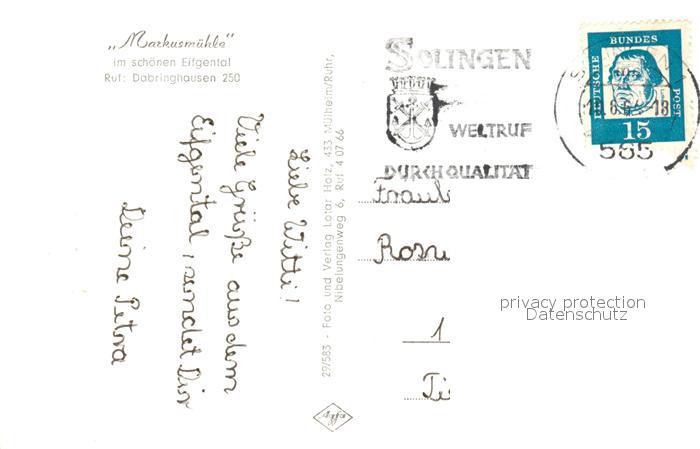 „Markusmühle"
im schönen Eifgental
Ruf: Dabringhausen 250
Liebe Witti!
Viele Grüße aus dem
Eifgental, sendet Dir
Deine Petra
29/583 - Foto und Verlag Lotar Holz, 433 Mülheim/Ruhr,
Nibelungenweg 6, Ruf 4 07 66
Agfa
SOLINGEN
WELTRUF
DURCH QUALITÄT
DEUTSCHE
BUNDES
POST
15
565
Fraul
Rosw
1
privacy protection
Datenschutz
Ti